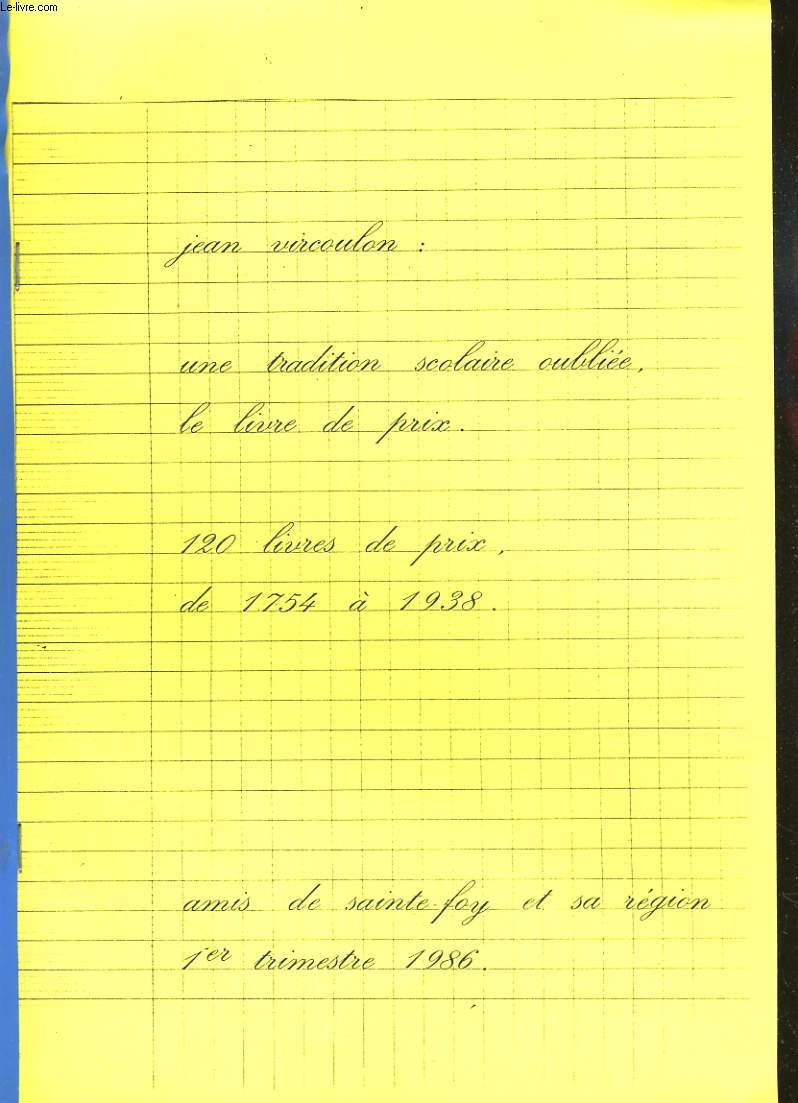 Le-livre.com
jean vircoulon :
une tradition scolaire oubliée,
le livre de prix.
120 livres de prix,
de 1754 à 1938.
amis de sainte-foy et sa région
1er trimestre 1986.